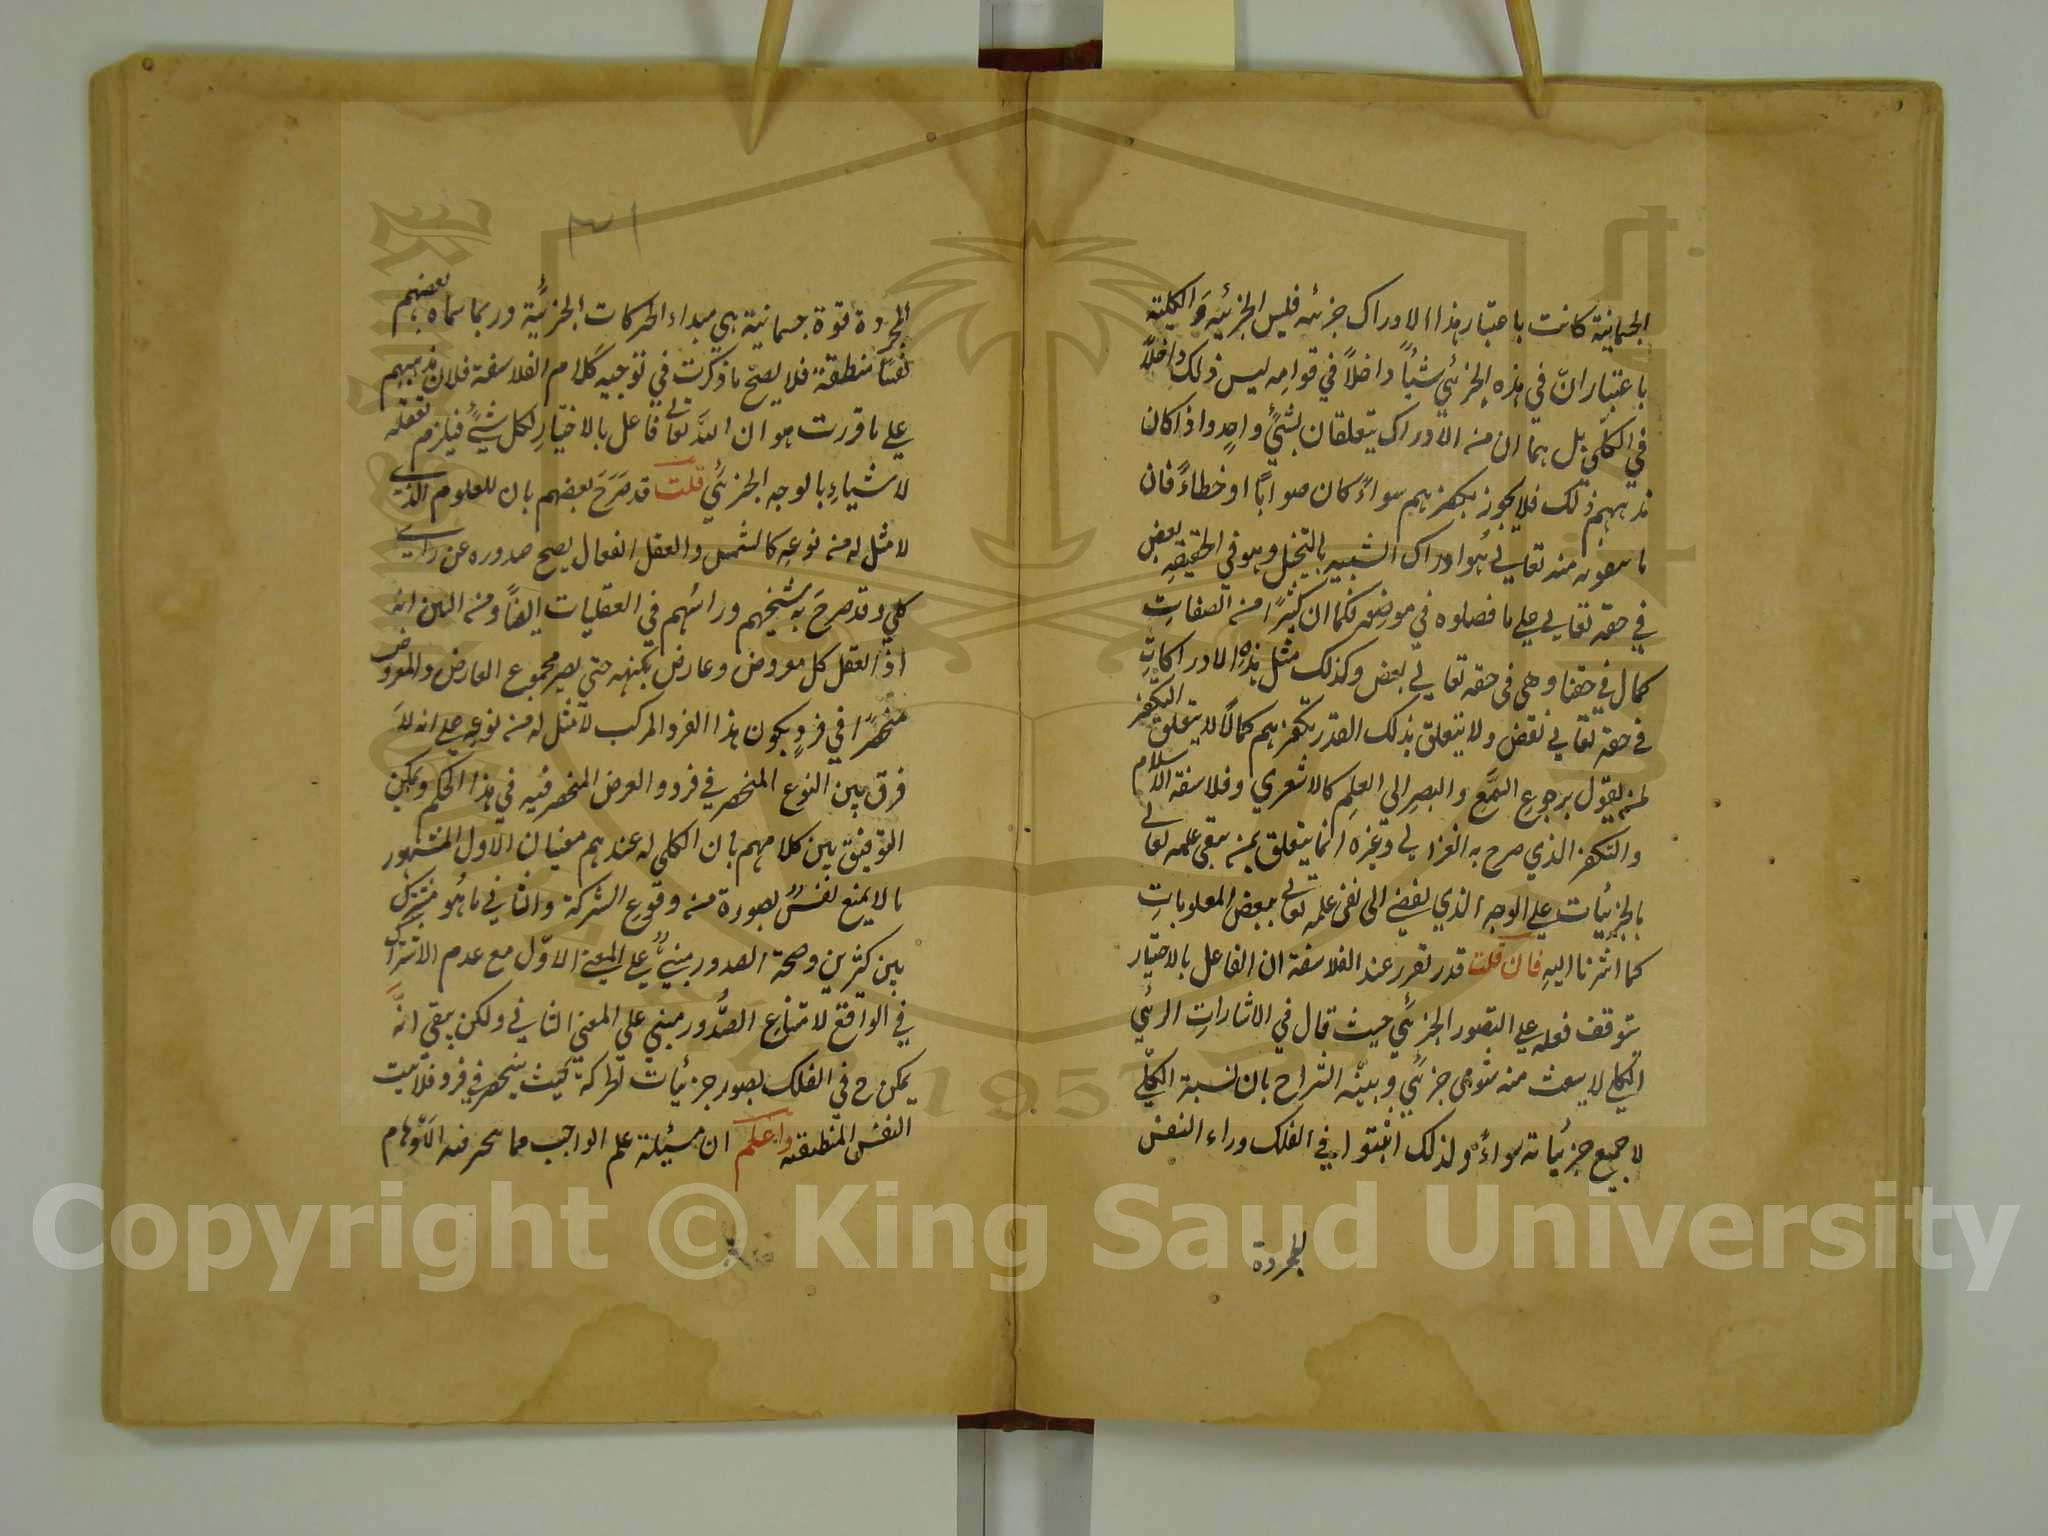 الجسمانية كانت باعتبار هذا الادراك جزئيه فليس الجزئيه والكليته
باعتبار انّ في هذه الجزئي شيأً داخلاً في قوامه ليس ذلك داخلاً
في الكلي بل هما ان من الادراك يتعلقان بشئ واحدٍ واذا كان
مذهبهم ذلك فلا يجوز تكفيرهم سواءً كان صوابًا او خطاءً فان
ما ينفونه منه تعالى هو ادراك الشبيه بالتخيل وهو في الحقيقه بعض
في حقه تعالى على ما فصلوه في موضعه فكما ان كثيرًا من الصفات
كمال في حقنا وهى فى حقه تعالى بعض وكذلك مثل هذه الادراكات
في حقه تعالى نقض ولا يتعلق بذلك القدر تكفيرهم كما لا يتعلق التكفير
لمن يقول برجوع السَّمْع والبصر الى العلم كالاشعري وفلاسفة الاسلام
والتكفير الذي صرح به الغزالى وغيره انما يتعلق بمن ينفى علمه تعالى
بالجزئيات على الوجه الذي يفضى الى نفى علمه تعالى ببعض المعلومات
كما اشرنا اليه فان قلت قد تقرر عند الفلاسفة ان الفاعل بالاختيار
يتوقف فعله على التصور الجزئي حيث قال في الاشارات الرئي
الكلي لا يبعث منه شوقى جزئي وبينه الشراح بان نسبة الكلي
لا جميع جزئياته سواءً ولذلك اثبتوا في الفلك وراء النفس
المجردة
٣١
المجردة قوة جسمانية هي مبداء الحركات الجزئية وربما سماه بعضهم
نفسًا منطبقة فلا يصح ما ذكرت في توجيه كلام الفلاسفة فلان مذهبهم
على ما قررت هو ان الله تعالى فاعل بالاختيار لكل شئ فيلزم تعقله
لاشياء بالوجه الجزئي قلت قد صَرَحَ بعضهم بان للعلوم الذى
لا مثل له من نوعه كالشمس والعقل الفعال يصح صدوره عن راى
كلي وقد صرحَ به شيخهم وراسهم في العقليات ايضًا ومن البين انه
اذ العقل كل معروض وعارض بكنهه حتى يصير مجموع العارض والمعروض
منحصرًا في فردٍ يكون هذا الفرد المركب لا مثل له من نوعه على انه لا
فرق بين النوع المنحصر في فرد والعرض المنحصر فيه في هذا الحكم ويمكن
التوفيق بين كلامهم بان الكلى له عندهم معنيان الاول المشهور
ما لا يمنع نفس تصوره من وقوع الشركة والثاني ما هو مشترك
بين كثرين وصحة الصدور مبنيٌ على المعنى الاوّل مع عدم الاشتراك
في الواقع لا متناع الصُّدور مبني على المعنى الثاني ولكن يبقى انَّه
يمكن ح في الفلك تصور جزئيات لحركة بحيث ينحصر في فرد فلا يثبت
النفس المنطبقه واعلم ان مسئيلة علم الواجب مما تحير فيه الاوهام